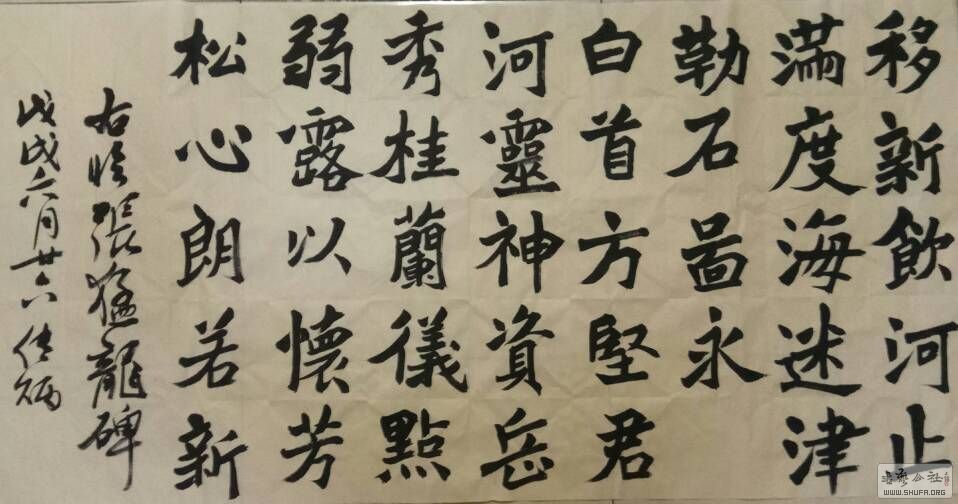 移新飲河止
滿度海迷津
勒石啚永
白首方堅君
河靈神資岳
秀桂蘭儀點
弱露以懷芳
松心朗若新
右臨張猛龍碑
戊戌六月廿六
WWW.SHUFA.ORG